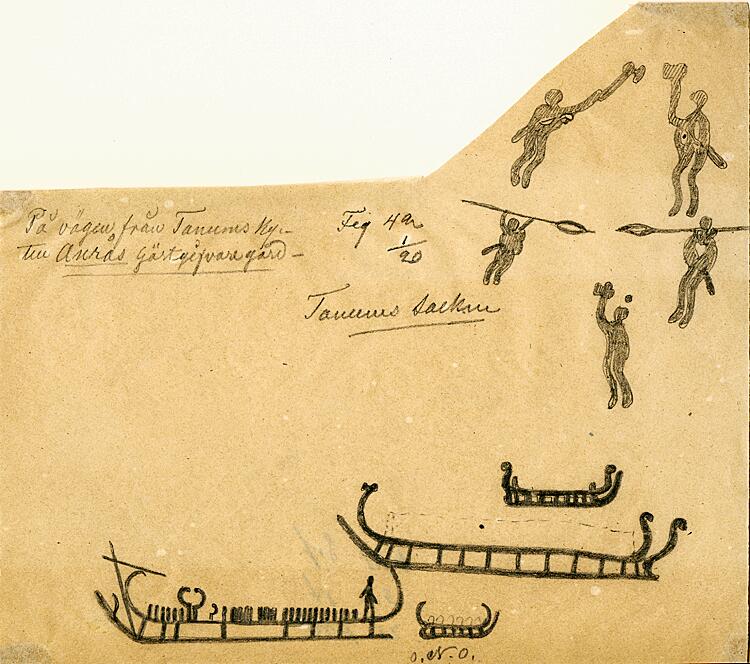 På vägen från Tanums Ky-
till Anrås Gästgifvaregård -
Fig 42
1/20
Tanums Socken
o.N.o.